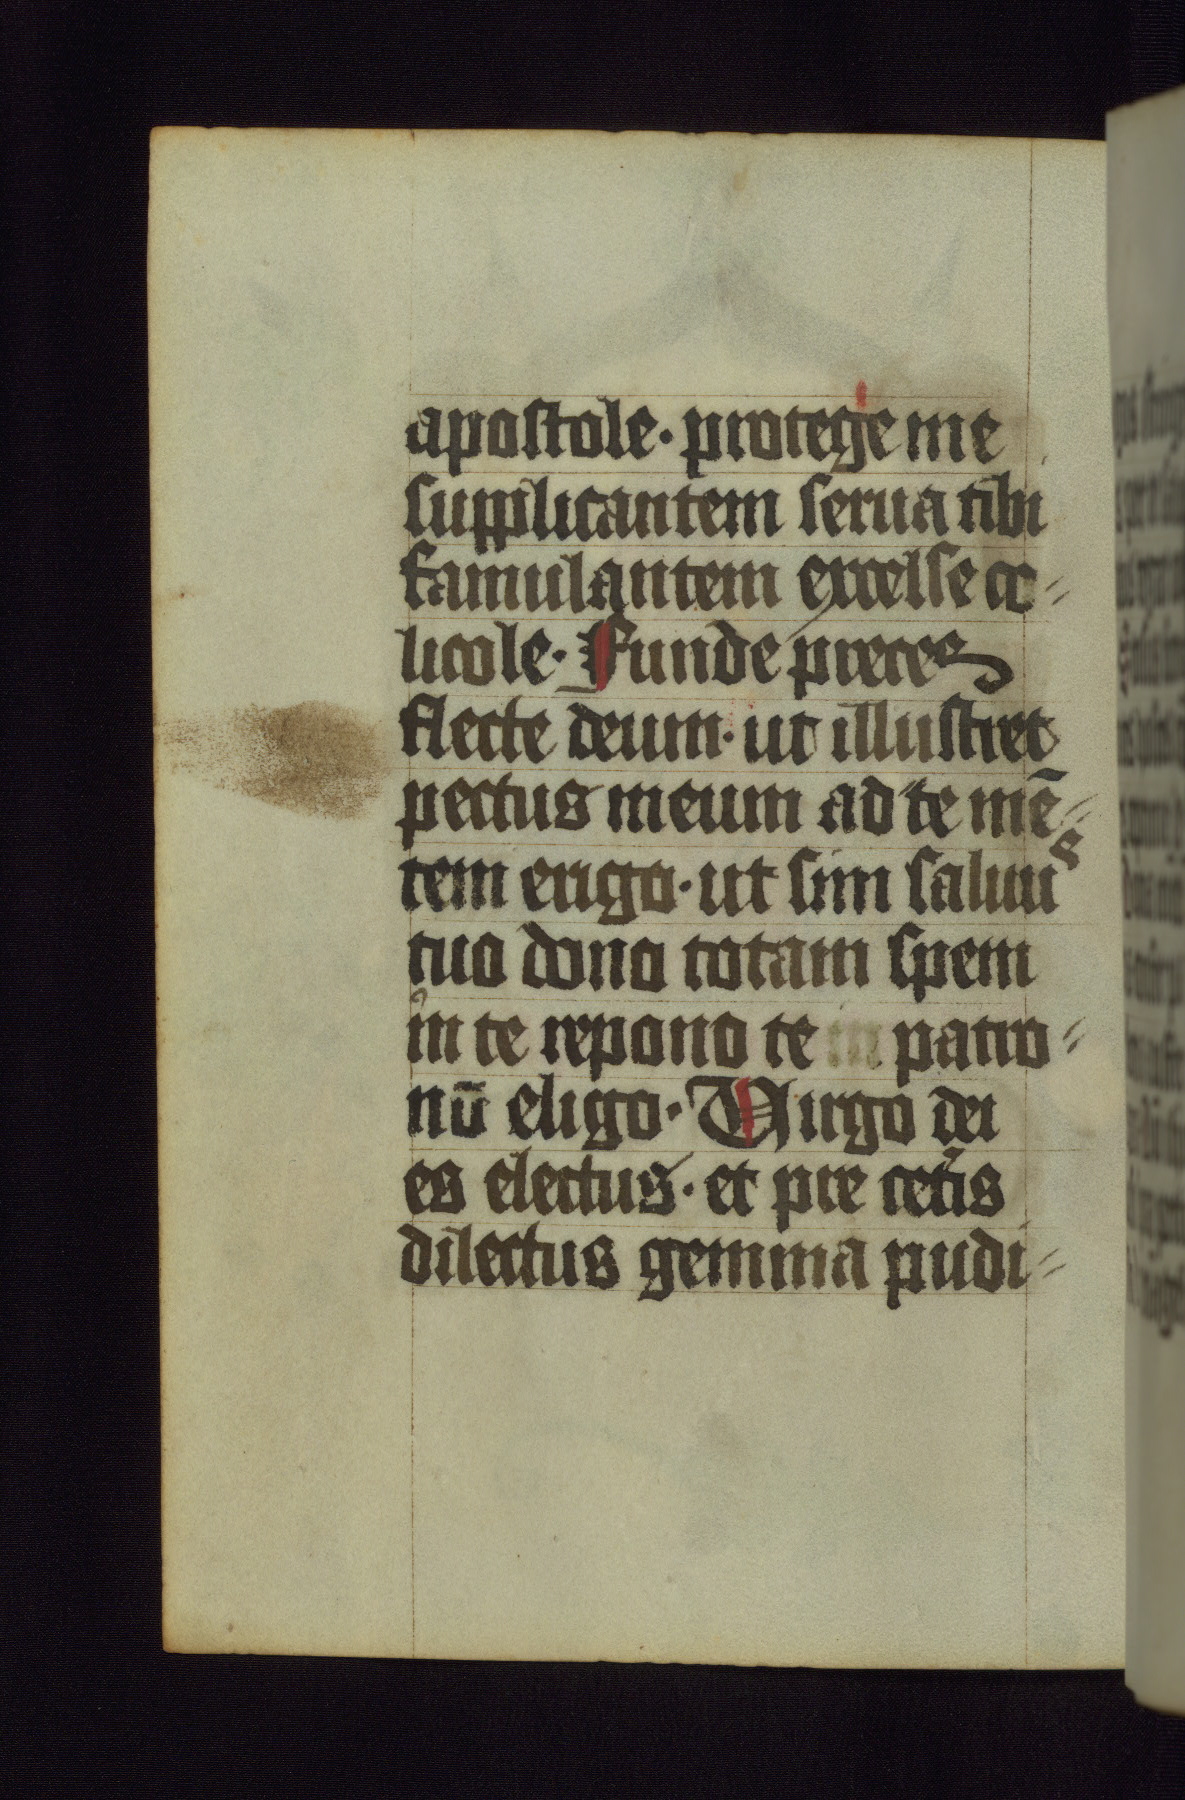 apostole· protege me
supplicantem serua tibi
famulantem excelse ce-
licole· Funde preces
flecte deum· ut illustret
pectus meum ad te mē-
tem erigo· ut sim saluus
tuo dono totam spem
in te repono te patro-
nū eligo· Virgo dei
es electus· et pre cet'is
dilectus gemma pudi-